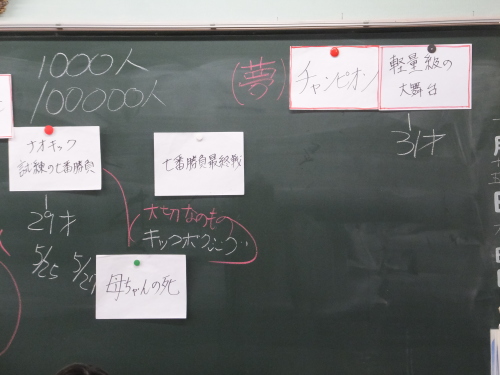 1000人
100000人
(夢)
チャンピオン
軽量級の
大舞台
31才
ナオキック
試練の七番勝負
七番勝負最終戦
29才
大切なもの
キックボクシング
5/25 5/27
母ちゃんの死